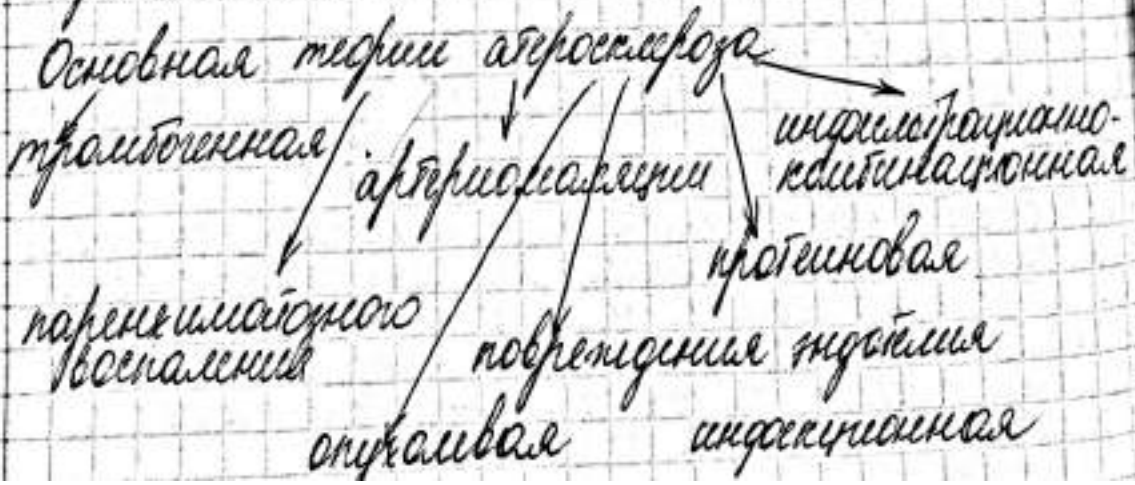 Основная теории атеросклероза
тромбогенная
артериомаляции
инфильтрационно-
комбинационная
протеиновая
паренхиматозного
воспаления
повреждения эндотелия
опухолевая
инфекционная